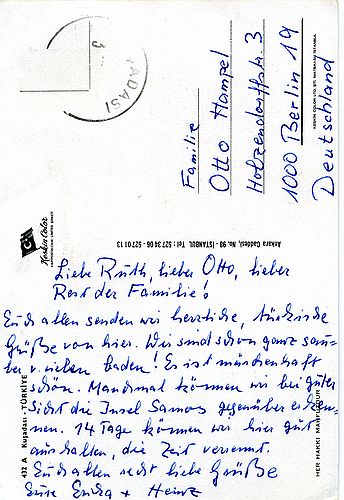 Familie
Otto Hampel
Holzendorffstr. 3
1000 Berlin 19
Deutschland
KUŞADASI
3
Keskin Color
Ankara Caddesi, No: 98 İSTANBUL Tel: 527 34 06 - 527 01 13
KESKİN COLOR LTD. ŞTİ. MATBAASI İSTANBUL
Liebe Ruth, lieber Otto, lieber
Rest der Familie!
Euch allen senden wir herzliche, türkische
Grüße von hier. Wir sind schon ganz sau-
ber v. vielen baden! Es ist märchenhaft
schön. Manchmal können wir bei guter
Sicht die Insel Samos gegenüber erken-
nen. 14 Tage können wir hier gut
aushalten, die Zeit verrennt.
Euch allen recht liebe Grüße
Eure Erika + Heinz
432 A Kuşadası - TÜRKİYE
HER HAKKI MAHFUZDUR